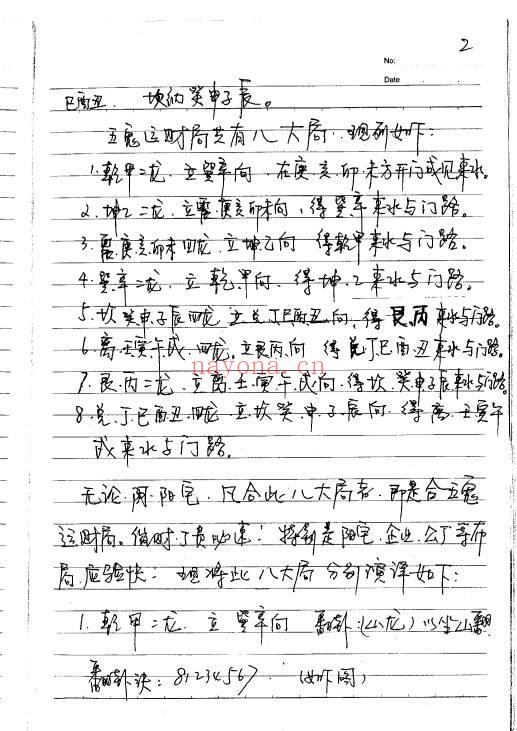 2
No:
Date
巳酉丑. 坎纳癸申子辰。
五鬼运财局共有八大局.现列如下:
1.乾甲二龙.立巽辛向,在庚亥卯未方开门或见来水。
2.坤乙二龙.立震庚亥卯未向,得巽辛来水与门路。
3.震庚亥卯未四龙,立坤乙向 得乾甲来水与门路。
4.巽辛二龙.立乾甲向.得坤.乙来水与门路。
5.坎癸申子辰四龙 立兑丁巳酉丑向,得艮丙来水与门路。
6.离.壬寅午戌.四龙.立艮丙向 得兑丁巳酉丑来水与门路。
nayona.cn
7.艮.丙二龙.立离.壬.寅午戌向.得坎.癸申子辰来水与门路。
8.兑.丁巳酉丑.四龙 立坎癸.申.子.辰向 得离.壬寅午
戌来水与门路。
无论阴.阳宅.凡合此八大局者.即是合五鬼
运财局。催财.丁贵 速:特别是阳宅.企业.公 等布
局.应验快:现将此八大局分别演译如下:
1.乾甲二龙.立巽辛向 翻卦:(山龙)以坐山翻
翻卦诀:81234567.(如下图)